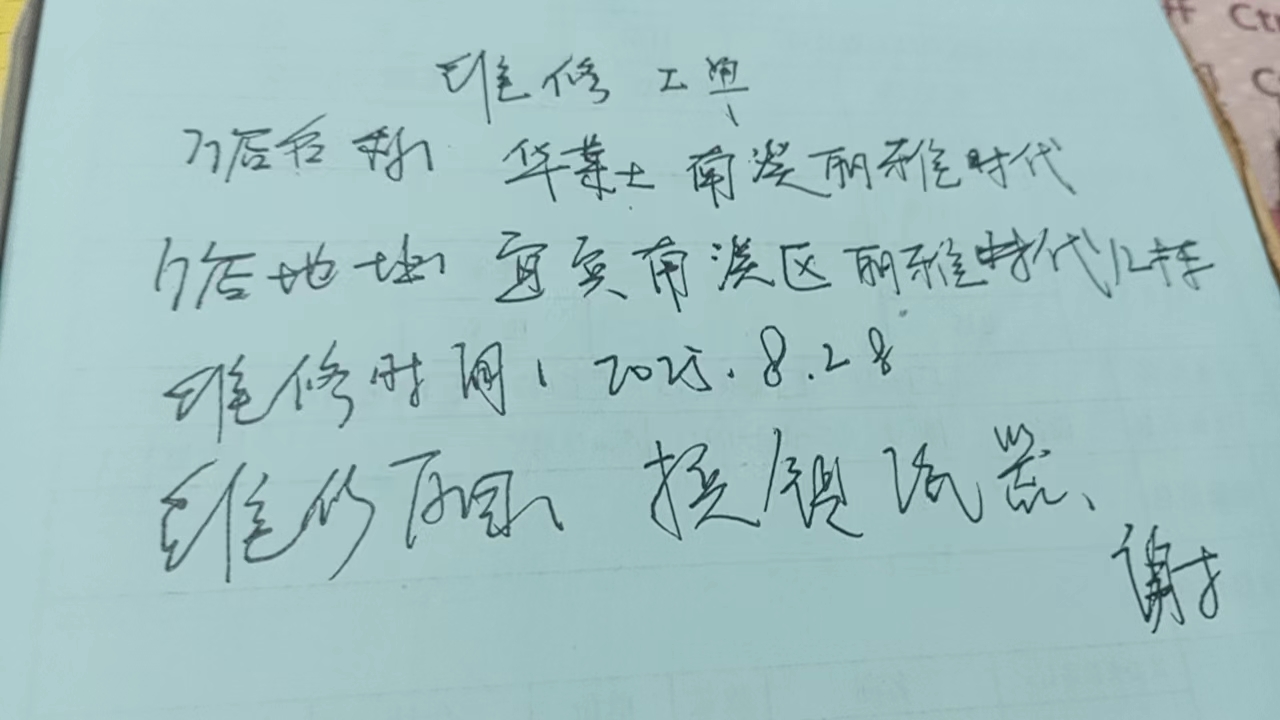 维修工单
门店名称 华莱士南溪丽雅时代
门店地址 宜宾南溪区丽雅时代12栋
维修时间: 2025.8.28
维修原因: 换镇流器、
谢
Ct
C